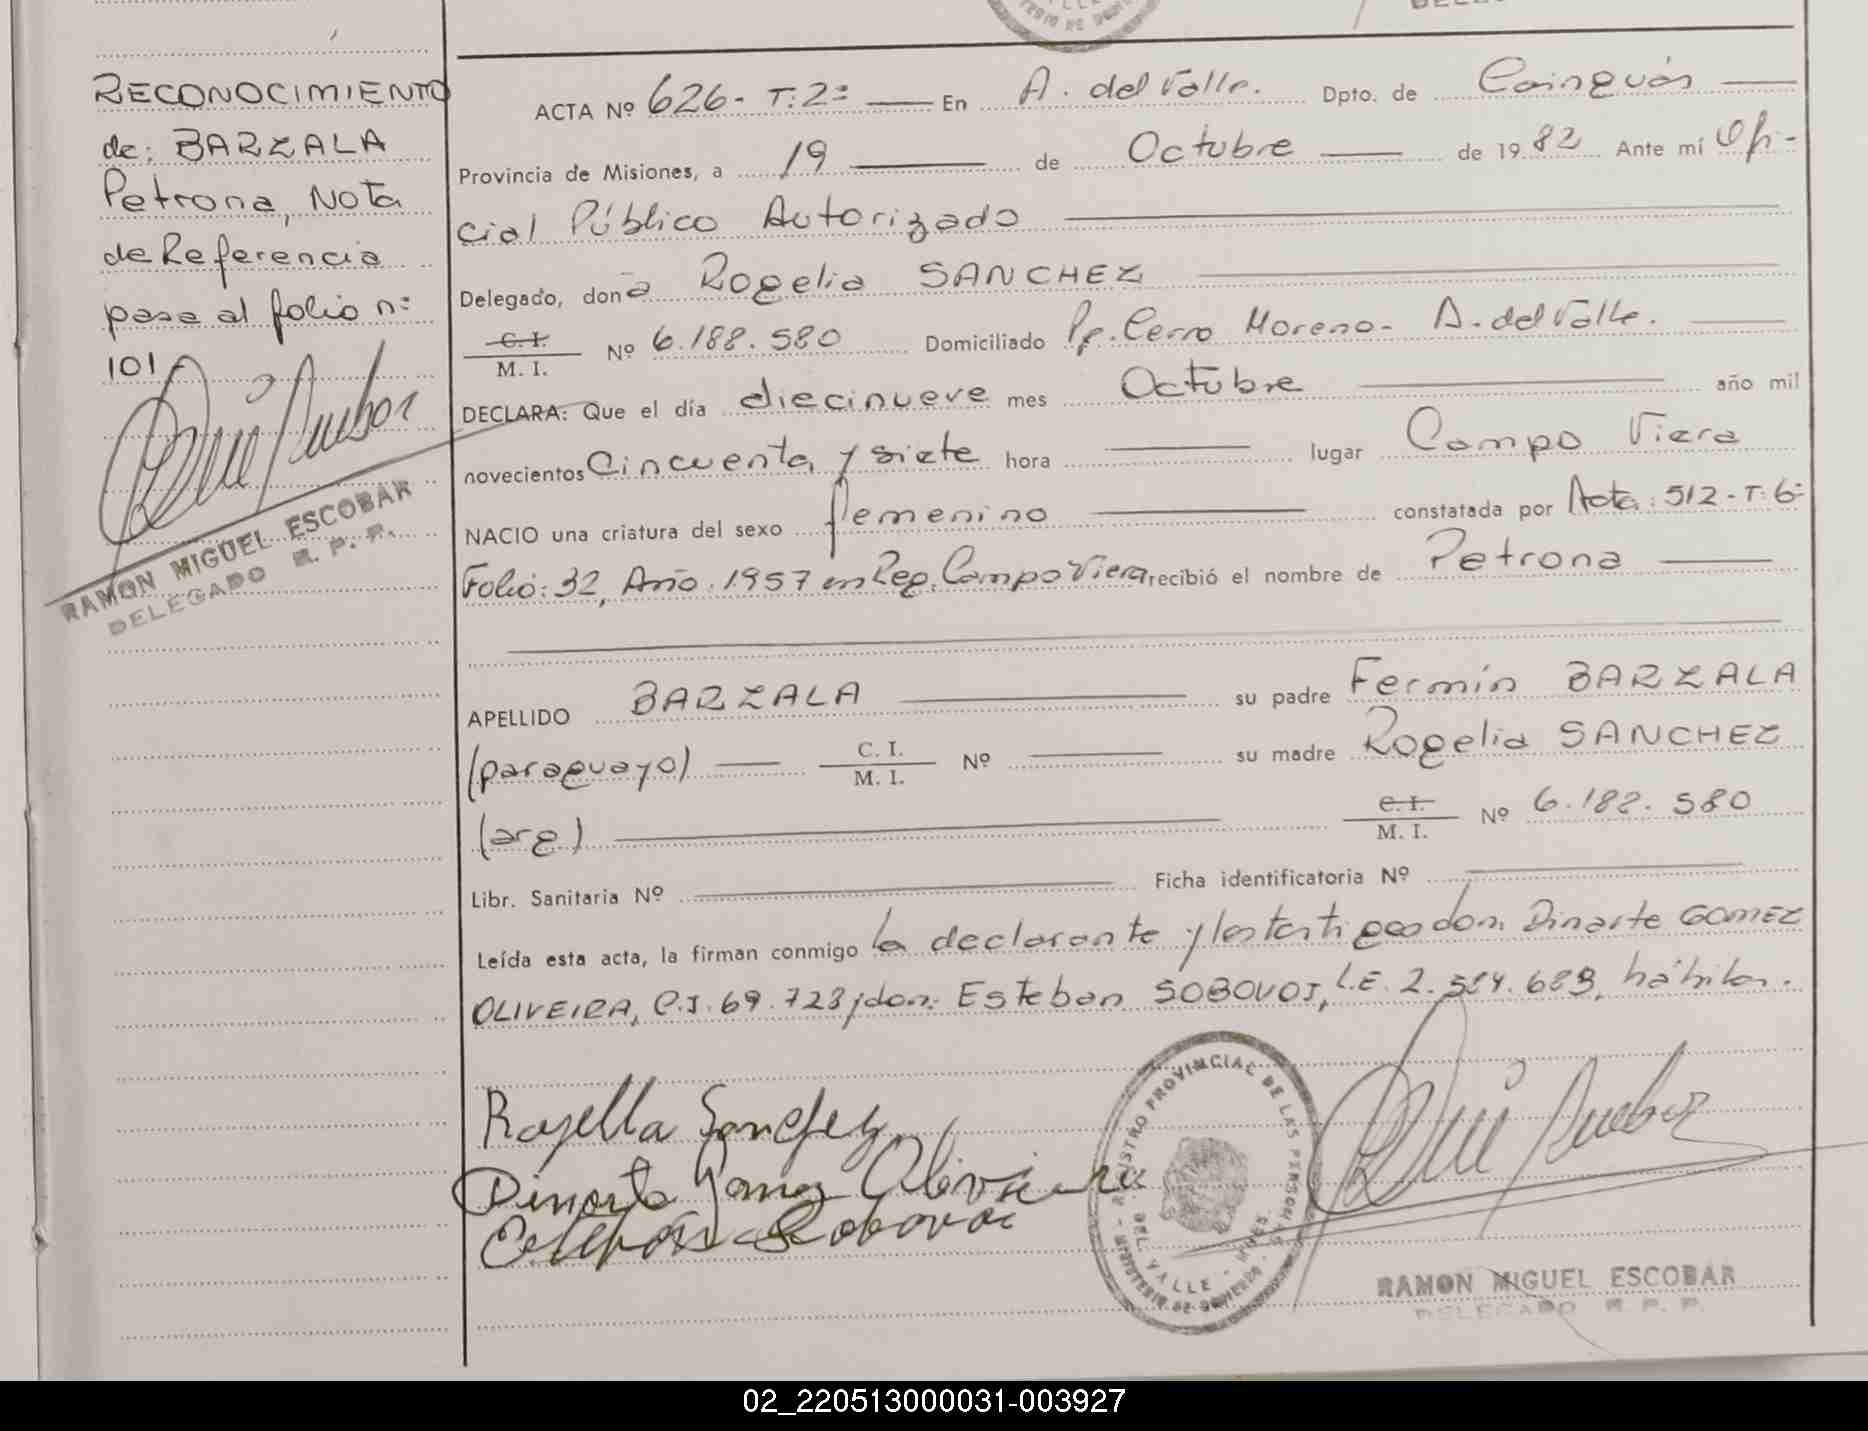 RECONOCIMIENTO
de: BARZALA
Petrona, Nota
de Referencia
pasa al folio nº
101.-
RAMON MIGUEL ESCOBAR
DELEGADO R. P. P.
ACTA Nº 626- T.2º En A. del Valle. Dpto. de Cainguás
Provincia de Misiones, a 19 de Octubre de 1982 Ante mí Ofi-
cial Público Autorizado
Delegado, doña Rogelia SANCHEZ
C. I.
M. I. Nº 6.188.580 Domiciliado Pje. Cerro Moreno- A. del Valle.
DECLARA: Que el día diecinueve mes Octubre año mil
novecientos Cincuenta y siete hora lugar Campo Viera
NACIO una criatura del sexo femenino constatada por Acta: 512-T:6º
Folio: 32, Año 1957 en Reg. Campo Viera recibió el nombre de Petrona
APELLIDO BARZALA su padre Fermín BARZALA
(paraguayo) C. I.
M. I. Nº su madre Rogelia SANCHEZ
(arg) C. I.
M. I. Nº 6.188.580
Libr. Sanitaria Nº Ficha identificatoria Nº
Leída esta acta, la firman conmigo la declarante y los testigos don. Dinarte GOMEZ
OLIVEIRA, C.I. 69.723 y don: Esteban SOBOVOI, L.E. 2. 689, hábiles.
Rogelia Sanchez
Dinarte Gomez Oliveira
Esteban Sobovoi
REGISTRO PROVINCIAL DE LAS PERSONAS
MINISTERIO DE GOBIERNO
DEL VALLE - MNES.
RAMON MIGUEL ESCOBAR
DELEGADO R. P. P.
02_220513000031-003927